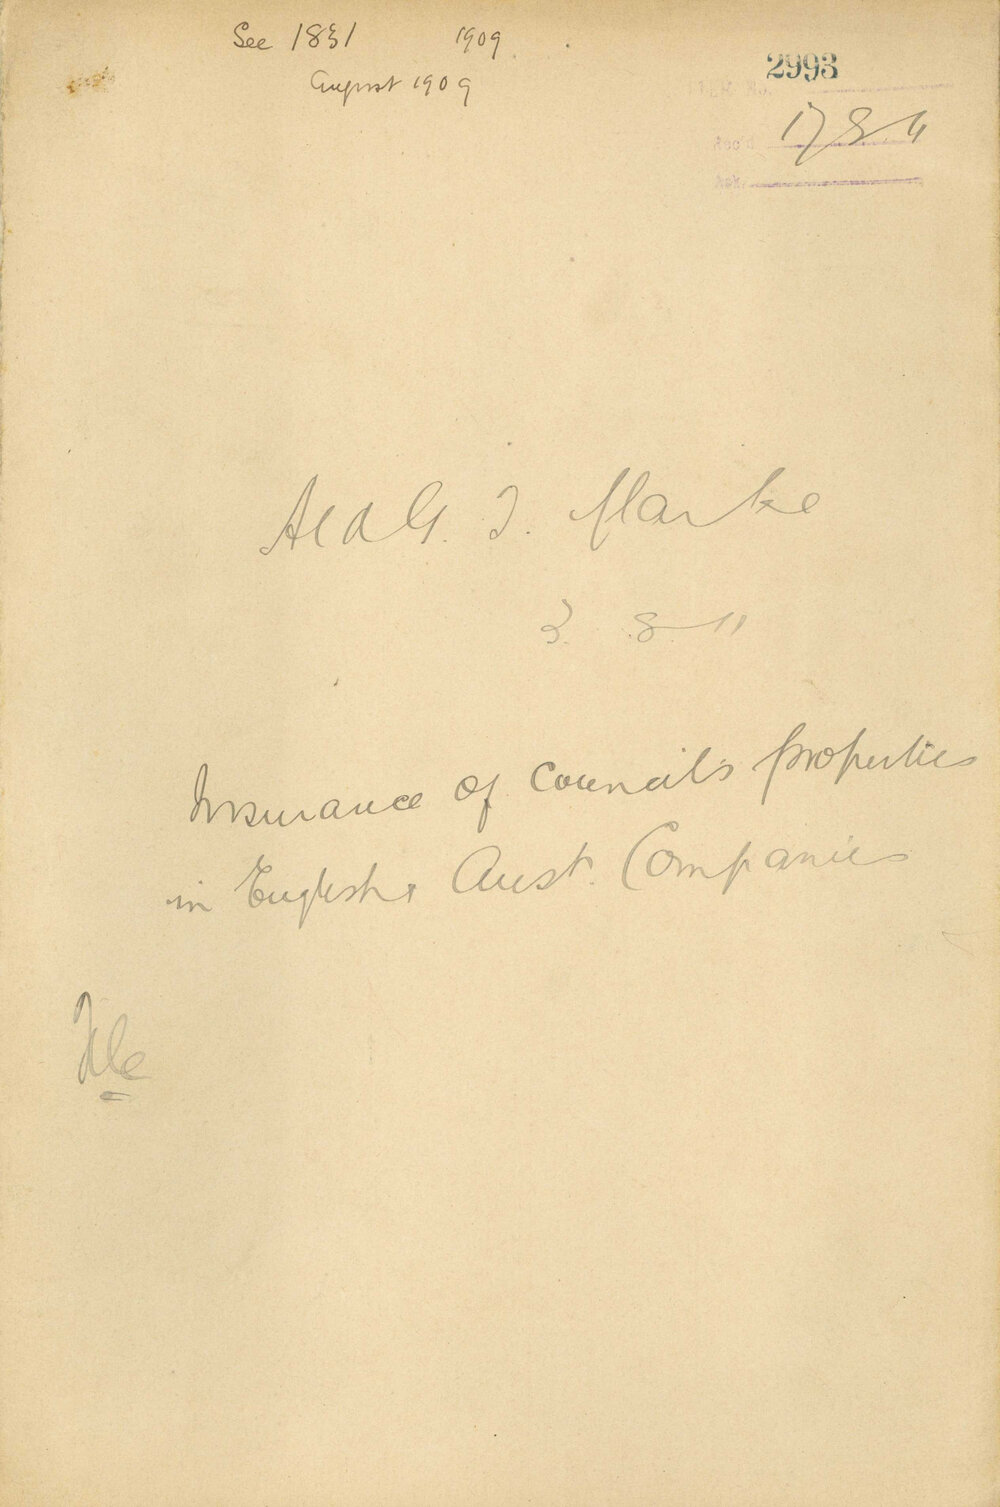 See 1831 1909
August 1909
2993
ITEM No.
Rec'd 17/8/11
Ack.
Ald G. T. Clarke
2. 8. 11
Insurance of Council's properties
in English & Aust. Companies
File